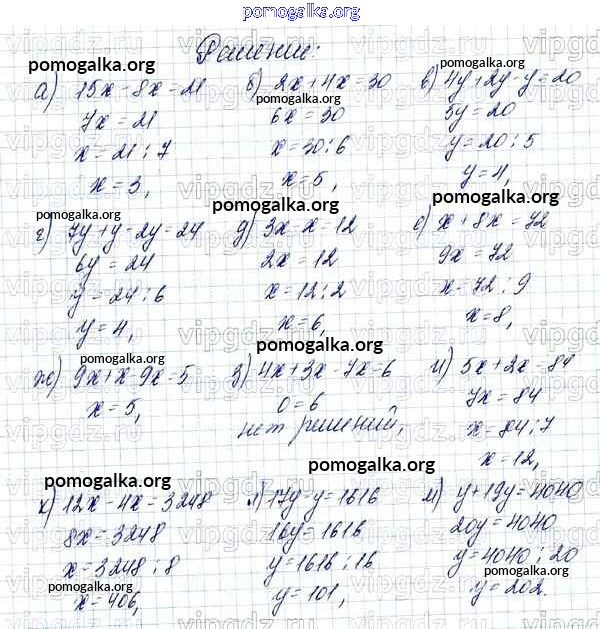 pomogalka.org
Решение:
pomogalka.org pomogalka.org pomogalka.org
а) 15x - 8x = 21
7x = 21
x = 21 : 7
x = 3,
б) 2x + 4x = 30
6x = 30
x = 30 : 6
x = 5,
в) 4y + 2y - y = 20
5y = 20
y = 20 : 5
y = 4,
pomogalka.org pomogalka.org pomogalka.org
г) 7y + y - 2y = 24
6y = 24
y = 24 : 6
y = 4,
д) 3x - x = 12
2x = 12
x = 12 : 2
x = 6,
е) x + 8x = 72
9x = 72
x = 72 : 9
x = 8,
pomogalka.org pomogalka.org pomogalka.org
ж) 9x + x - 9x = 5
x = 5,
з) 4x + 3x - 7x = 6
0 = 6
нет решений,
и) 5x + 2x = 84
7x = 84
x = 84 : 7
x = 12,
pomogalka.org pomogalka.org pomogalka.org
к) 12x - 4x = 3248
8x = 3248
x = 3248 : 8
x = 406,
л) 17y - y = 1616
16y = 1616
y = 1616 : 16
y = 101,
м) y + 19y = 4040
20y = 4040
y = 4040 : 20
y = 202.
pomogalka.org pomogalka.org pomogalka.org
vipgdz.ru